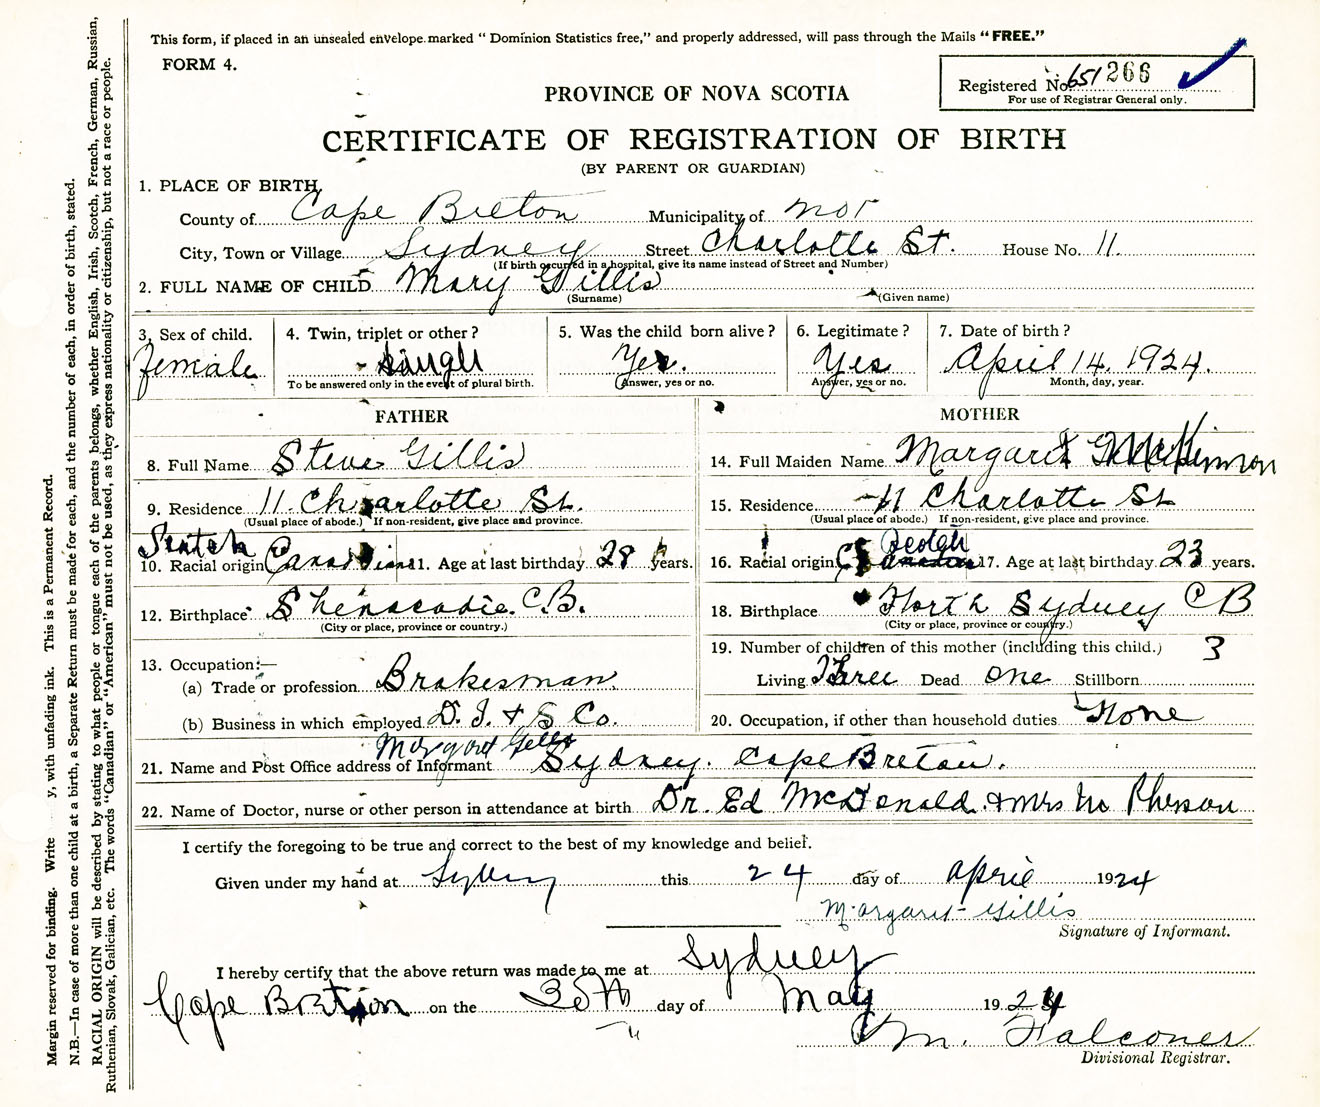 This form, if placed in an unsealed envelope marked "Dominion Statistics free," and properly addressed, will pass through the Mails "FREE."
FORM 4.
Registered No. 651 266
For use of Registrar General only.
PROVINCE OF NOVA SCOTIA
CERTIFICATE OF REGISTRATION OF BIRTH
(BY PARENT OR GUARDIAN)
1. PLACE OF BIRTH,
County of Cape Breton Municipality of
City, Town or Village Sydney Street Charlotte St. House No. 11.
(If birth occurred in a hospital, give its name instead of Street and Number)
2. FULL NAME OF CHILD Mary Gillis
(Surname) (Given name)
3. Sex of child. 4. Twin, triplet or other? 5. Was the child born alive? 6. Legitimate? 7. Date of birth?
female Single Yes. Yes April 14. 1924.
To be answered only in the event of plural birth. (Answer, yes or no. Answer, yes or no. Month, day, year.
FATHER MOTHER
8. Full Name Steve Gillis 14. Full Maiden Name Margaret McKinnon
9. Residence 11. Charlotte St. 15. Residence 11 Charlotte St
(Usual place of abode.) If non-resident, give place and province. (Usual place of abode.) If non-resident, give place and province.
Scotch Scotch
10. Racial origin Canadian 11. Age at last birthday 28 years. 16. Racial origin Canadian 17. Age at last birthday 23 years.
12. Birthplace Shenacadie. C.B. 18. Birthplace North Sydney C B
(City or place, province or country.) (City or place, province or country.)
13. Occupation:— 19. Number of children of this mother (including this child.) 3
(a) Trade or profession Brakesman Living Three Dead one Stillborn
(b) Business in which employed D. I. & S Co. 20. Occupation, if other than household duties None
Margaret Gillis
21. Name and Post Office address of Informant Sydney. Cape Breton.
22. Name of Doctor, nurse or other person in attendance at birth Dr. Ed McDonald. & Mrs Mc Pherson
I certify the foregoing to be true and correct to the best of my knowledge and belief.
Given under my hand at Sydney this 24 day of April 1924
Margaret Gillis
Signature of Informant.
I hereby certify that the above return was made to me at Sydney
Cape Breton on the 30th day of May 1924
M. Falconer
Divisional Registrar.
Margin reserved for binding. Write y, with unfading ink. This is a Permanent Record.
N.B.—In case of more than one child at a birth, a Separate Return must be made for each, and the number of each, in order of birth, stated.
RACIAL ORIGIN will be described by stating to what people or tongue each of the parents belongs, whether English, Irish, Scotch, French, German, Russian,
Ruthenian, Slovak, Galician, etc. The words "Canadian" or "American" must not be used, as they express nationality or citizenship, but not a race or people.